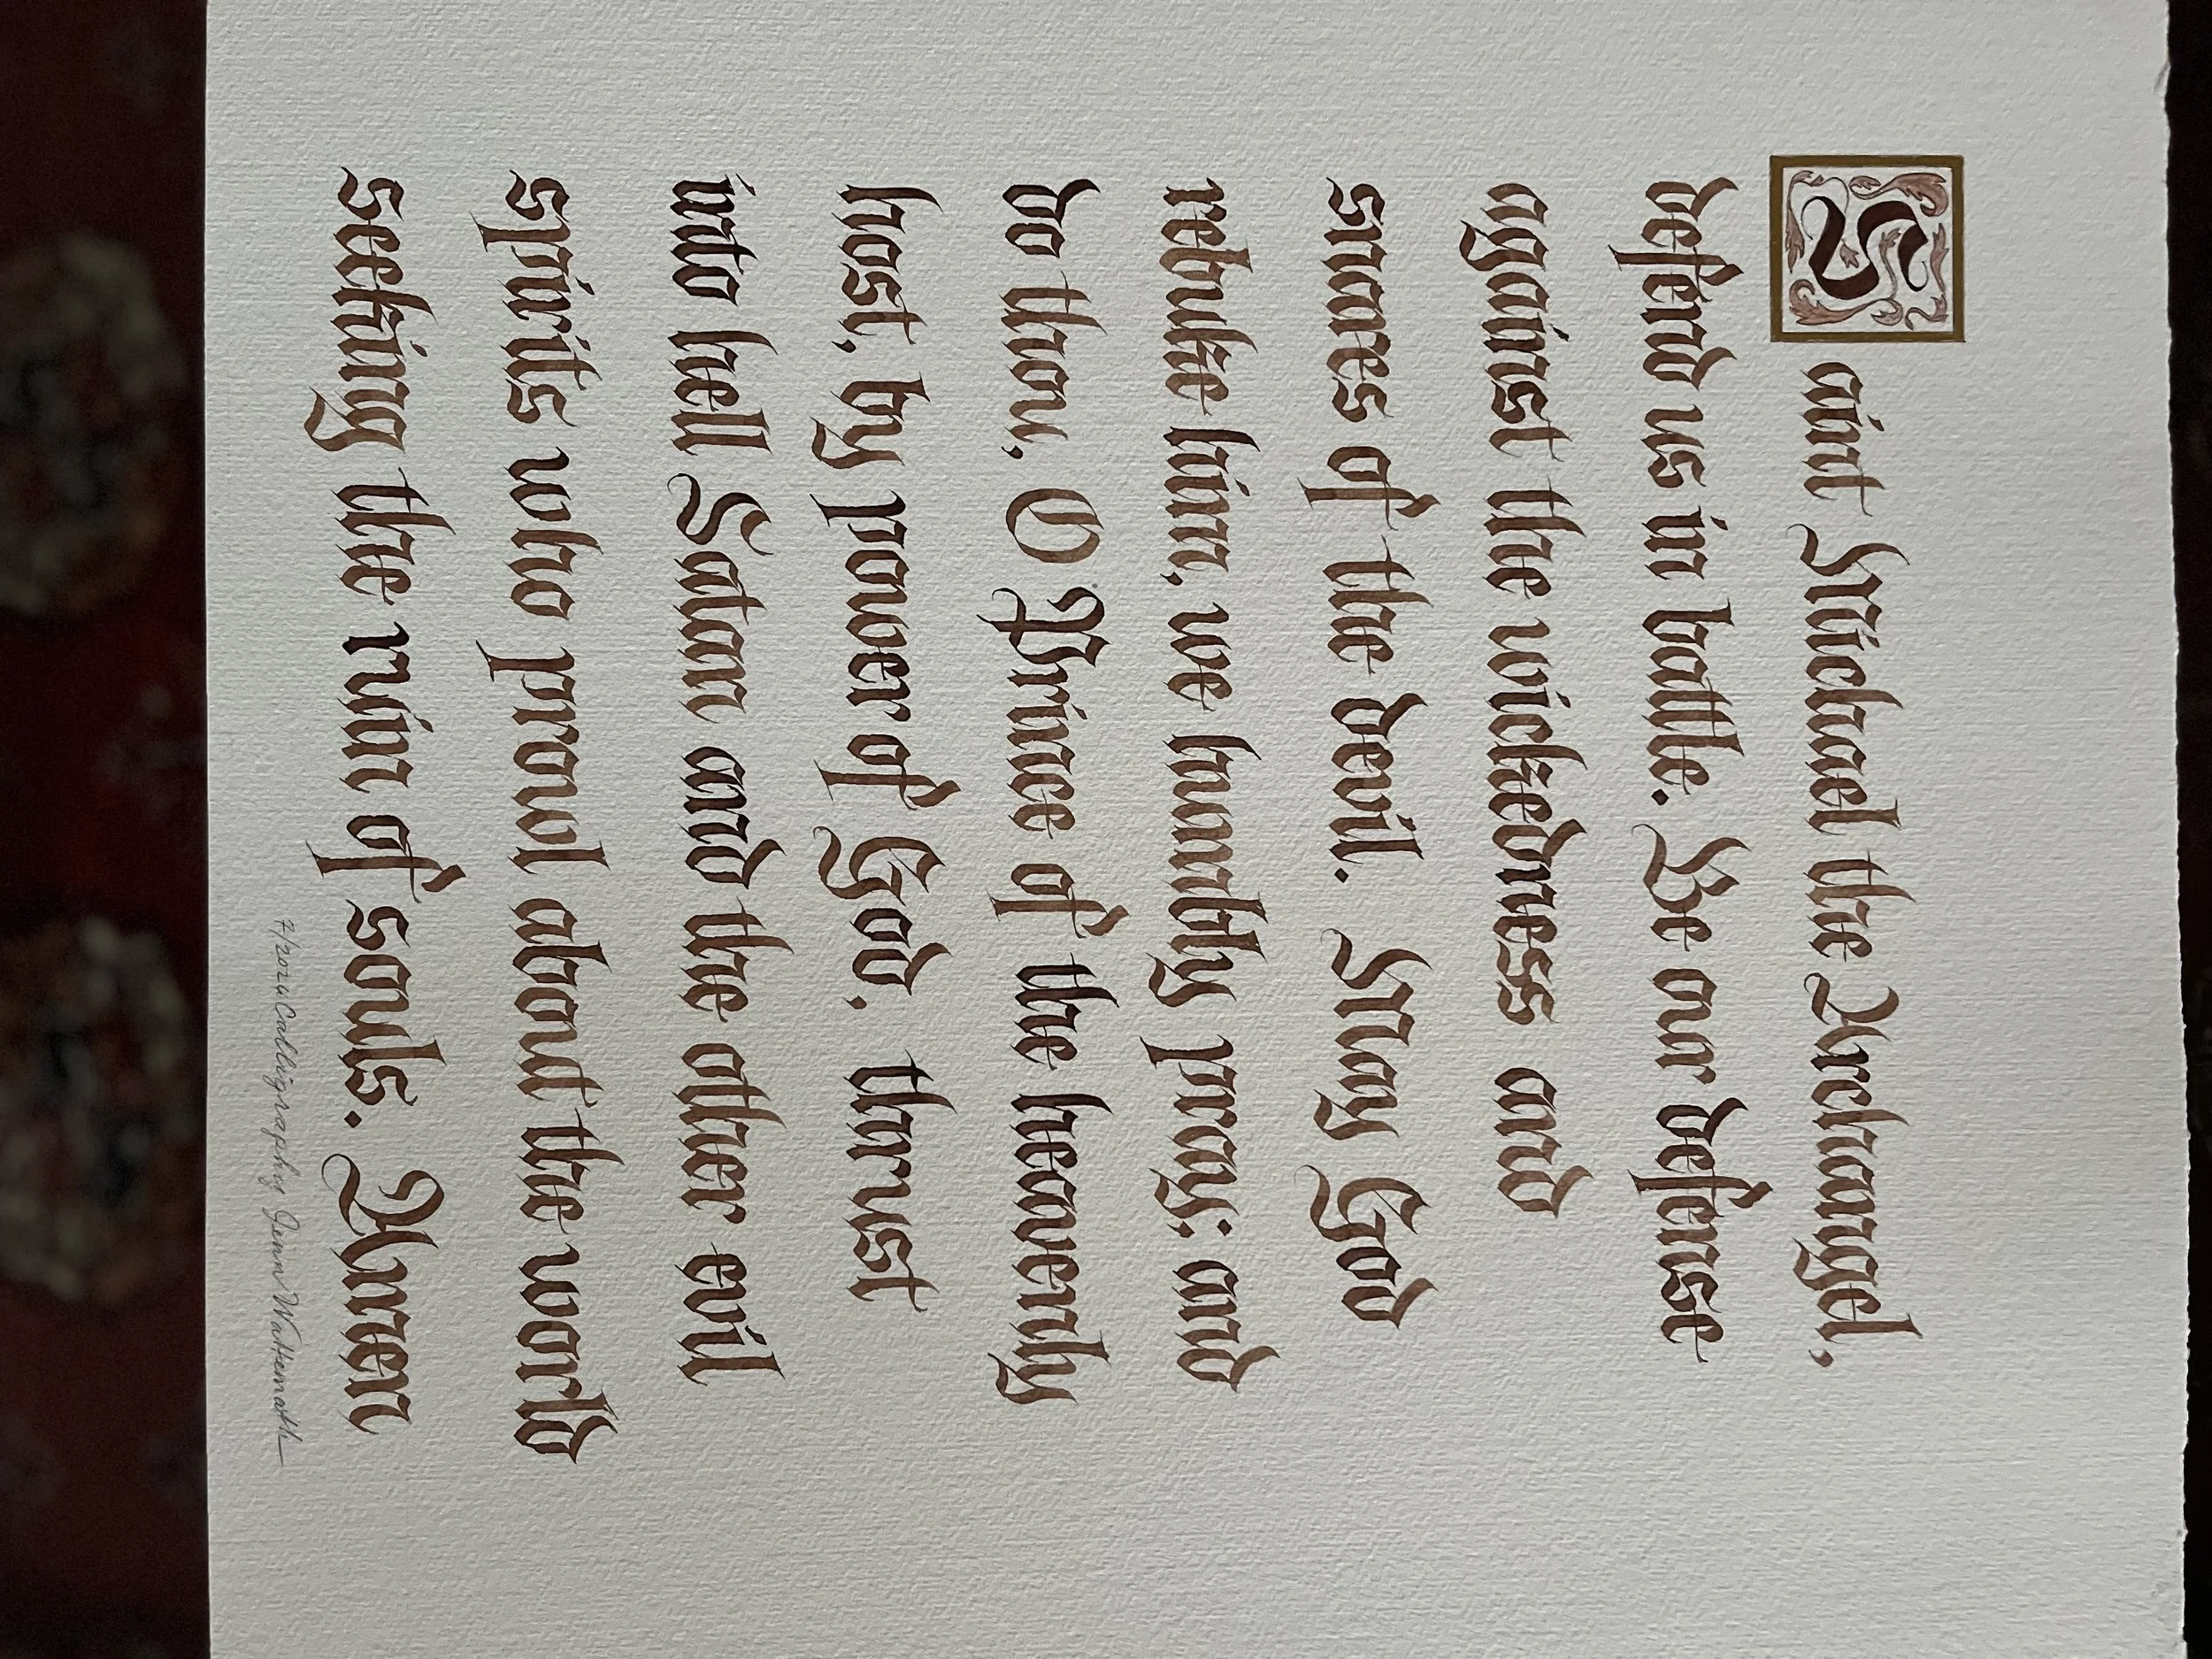 Saint Michael the Archangel,
defend us in battle. Be our defense
against the wickedness and
snares of the devil. May God
rebuke him, we humbly pray; and
do thou, O Prince of the heavenly
host, by power of God, thrust
into hell Satan and the other evil
spirits who prowl about the world
seeking the ruin of souls. Amen
Calligraphy Jenn